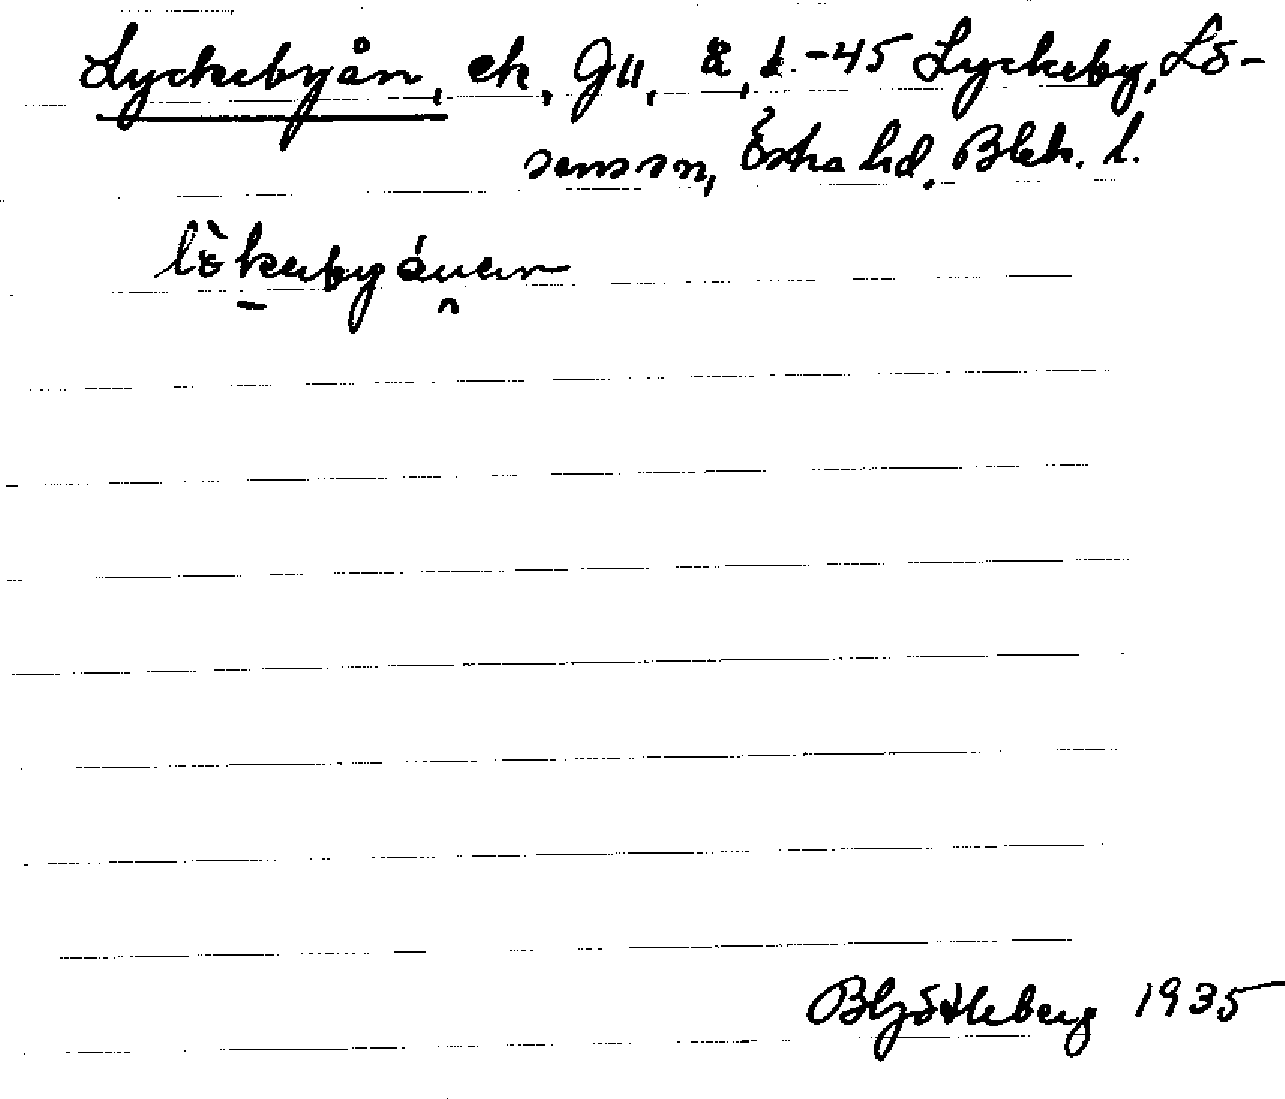 Lyckebyån, ek, Gu, ä, d. -45 Lyckeby, Lö-
senssn, Östra hd. Blek. l.
lökebyånen
Bhj. Götleberg 1935